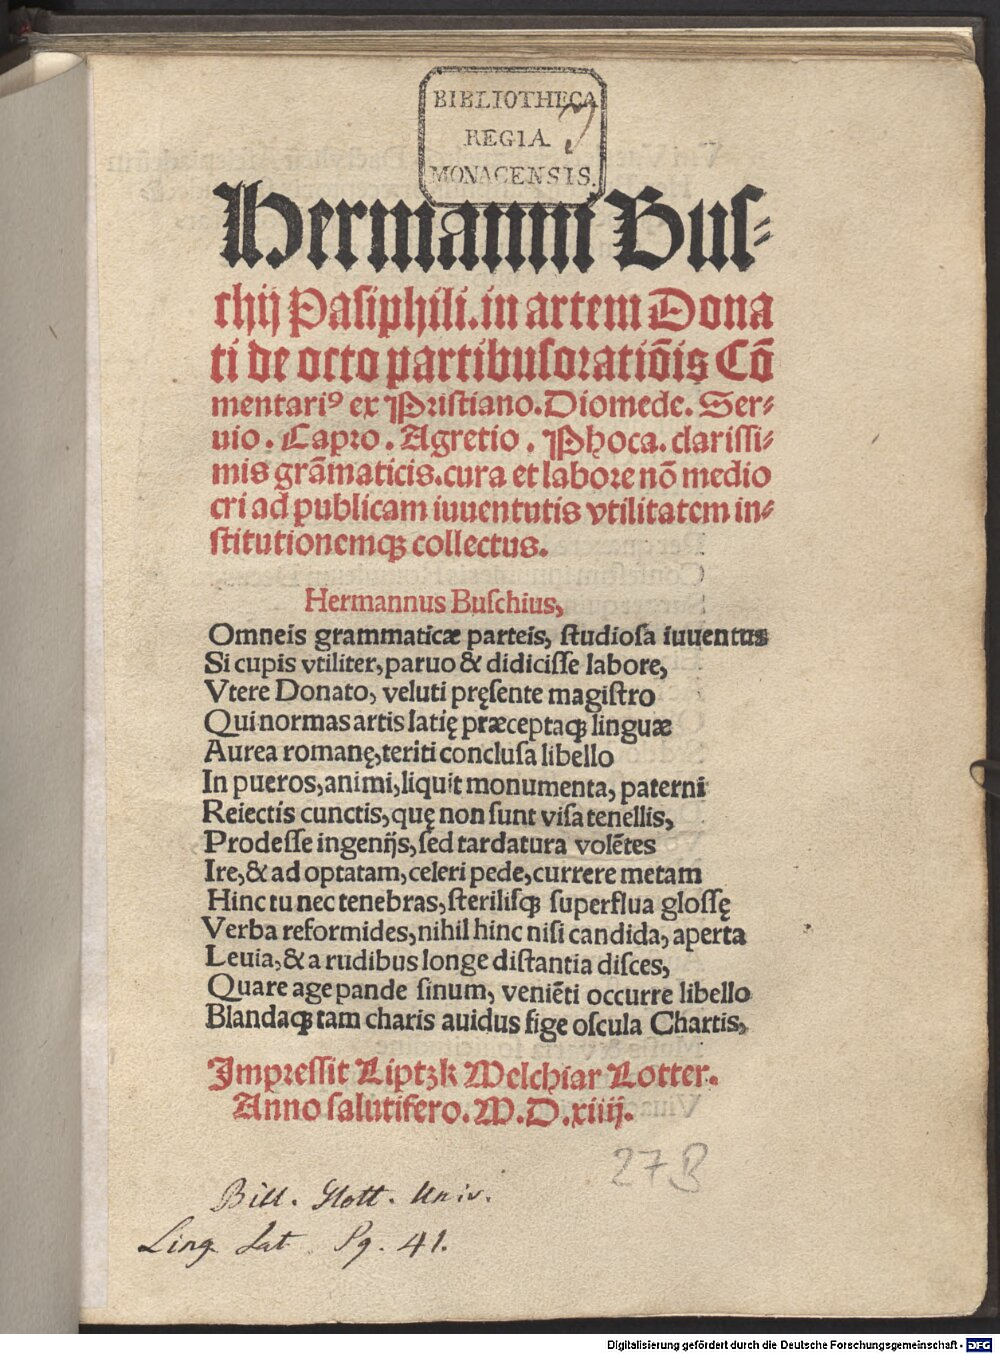 BIBLIOTHECA
REGIA
MONACENSIS.
Hermanni Buſ⸗
chij Paſiphili. in artem Dona
ti de octo partibuſ oratiōis Cō
mentariꝰ ex Priſtiano. Diomede. Ser⸗
uio. Capro. Agretio. Phoca. clariſſi⸗
mis grāmaticis. cura et labore nō medio
cri ad publicam iuuentutis vtilitatem in⸗
ſtitutionemqꝫ collectus.
Hermannus Buſchius,
Omneis grammaticæ parteis, ſtudioſa iuuentus
Si cupis vtiliter, paruo & didiciſſe labore,
Vtere Donato, veluti pręſente magiſtro
Qui normas artis latię præceptaqꝫ linguæ
Aurea romanę, teriti concluſa libello
In pueros, animi, liquit monumenta, paterni
Reiectis cunctis, quę non ſunt viſa tenellis,
Prodeſſe ingenijs, ſed tardatura volētes
Ire, & ad optatam, celeri pede, currere metam
Hinc tu nec tenebras, ſteriliſqꝫ ſuperflua gloſſę
Verba reformides, nihil hinc niſi candida, aperta
Leuia, & a rudibus longe diſtantia diſces,
Quare age pande ſinum, veniēti occurre libello
Blandaqꝫ tam charis auidus fige oſcula Chartis,
Impreſſit Liptzk Melchiar Lotter.
Anno ſalutifero. M.D.xiiij.
27 B
Bill. Hott. Univ.
Ling Lat. Pg. 41.
Digitalisierung gefördert durch die Deutsche Forschungsgemeinschaft - DFG